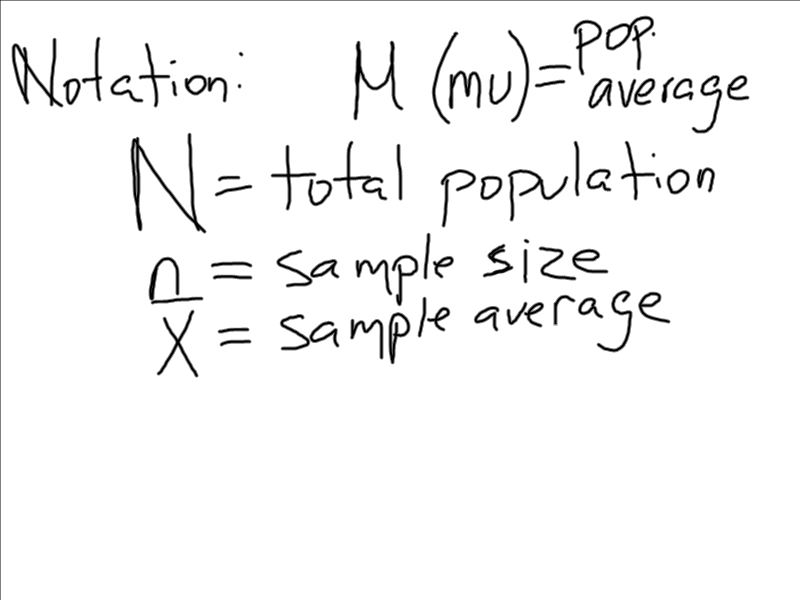 Notation: M (mu) = pop. average
N = total population
n = sample size
X̅ = sample average